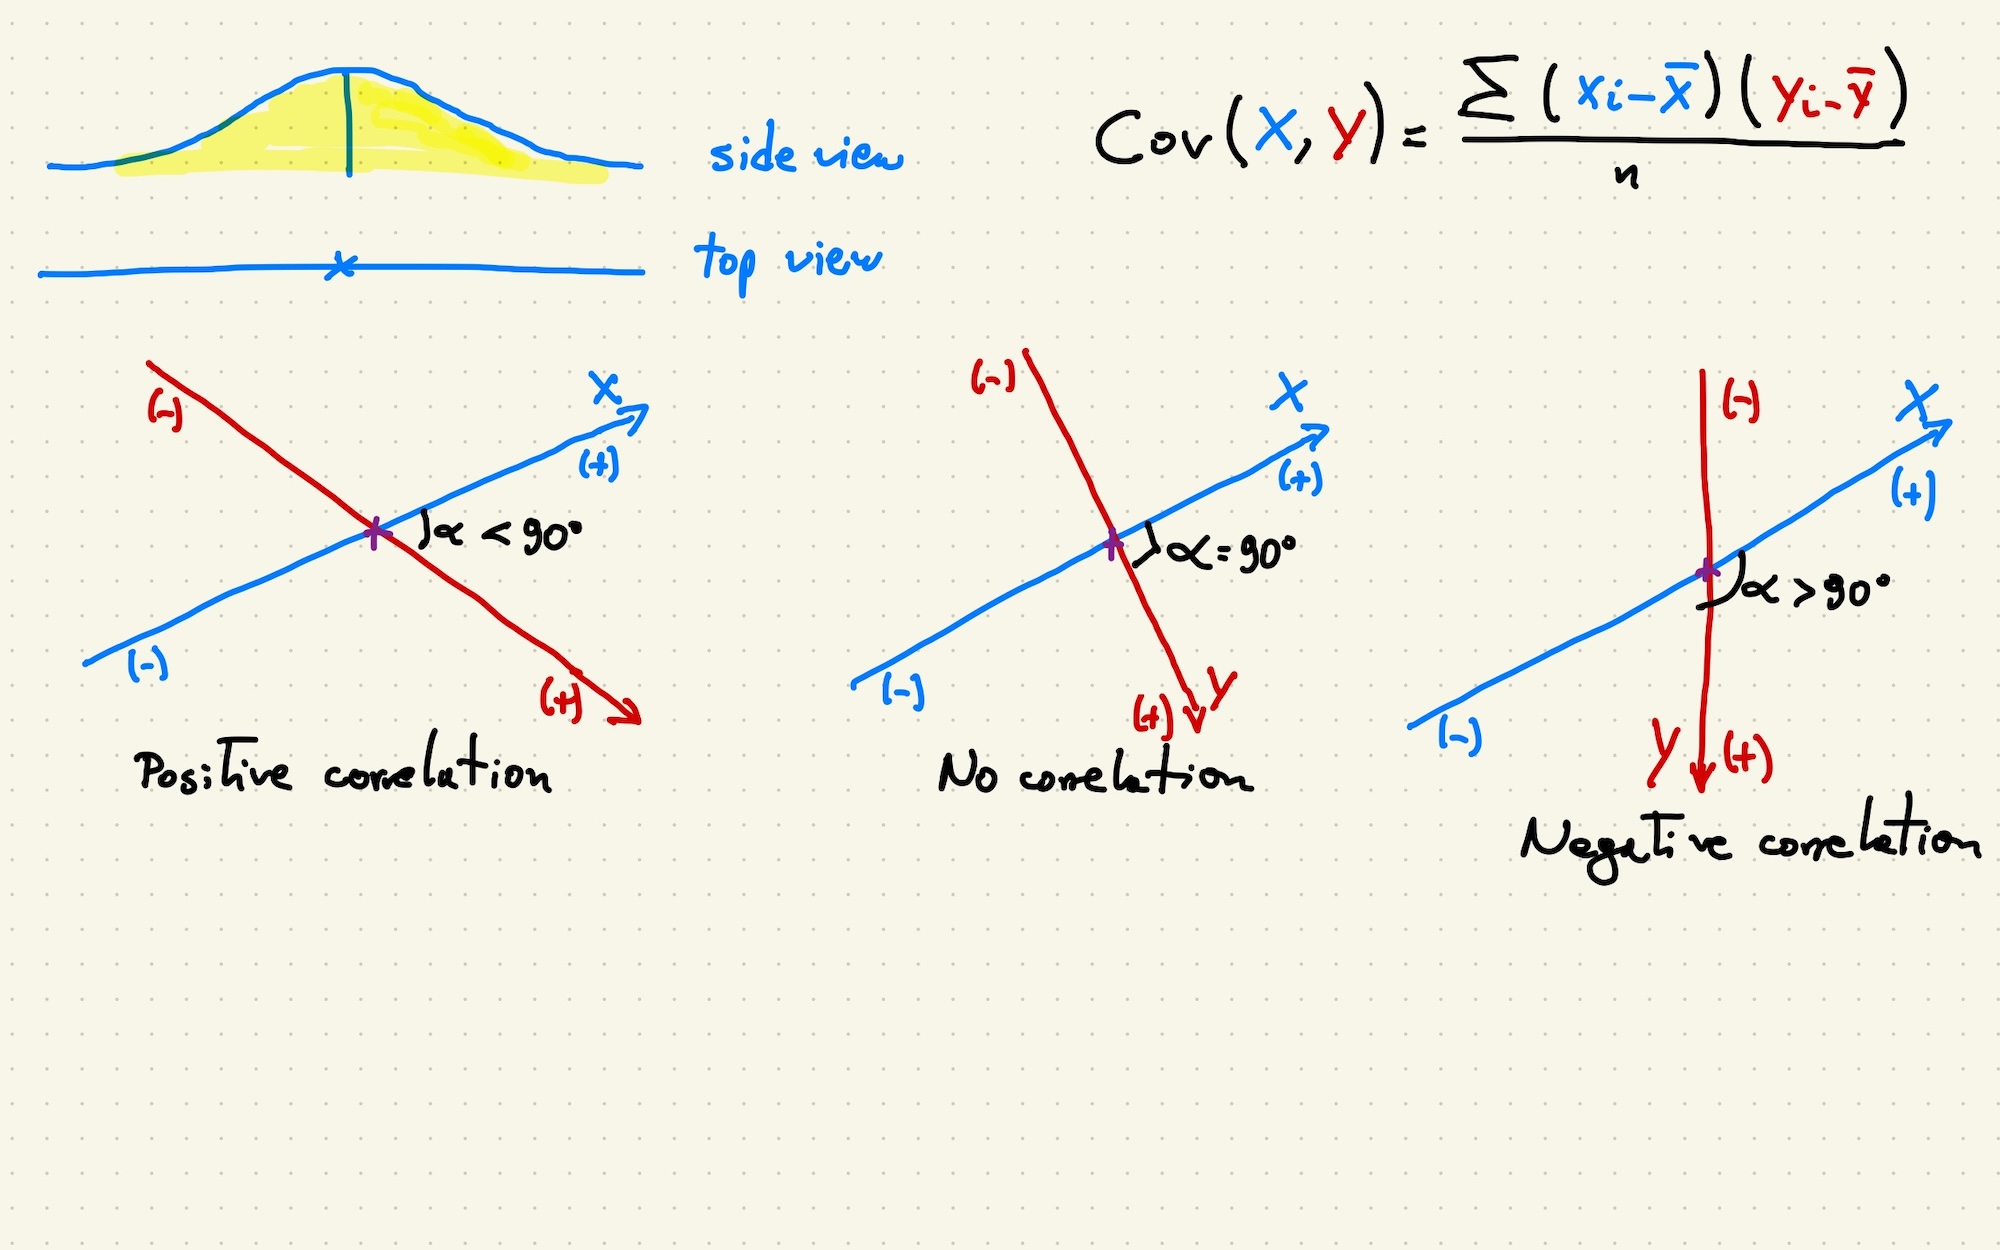 side view
Cov(X, Y) = Σ (xi - x̄)(yi - ȳ) / n
top view
(-)
X
(+)
α < 90°
(-)
(+)
Positive correlation
(-)
X
(+)
α = 90°
(-)
(+) Y
No correlation
(-)
X
(+)
α > 90°
(-)
Y (+)
Negative correlation